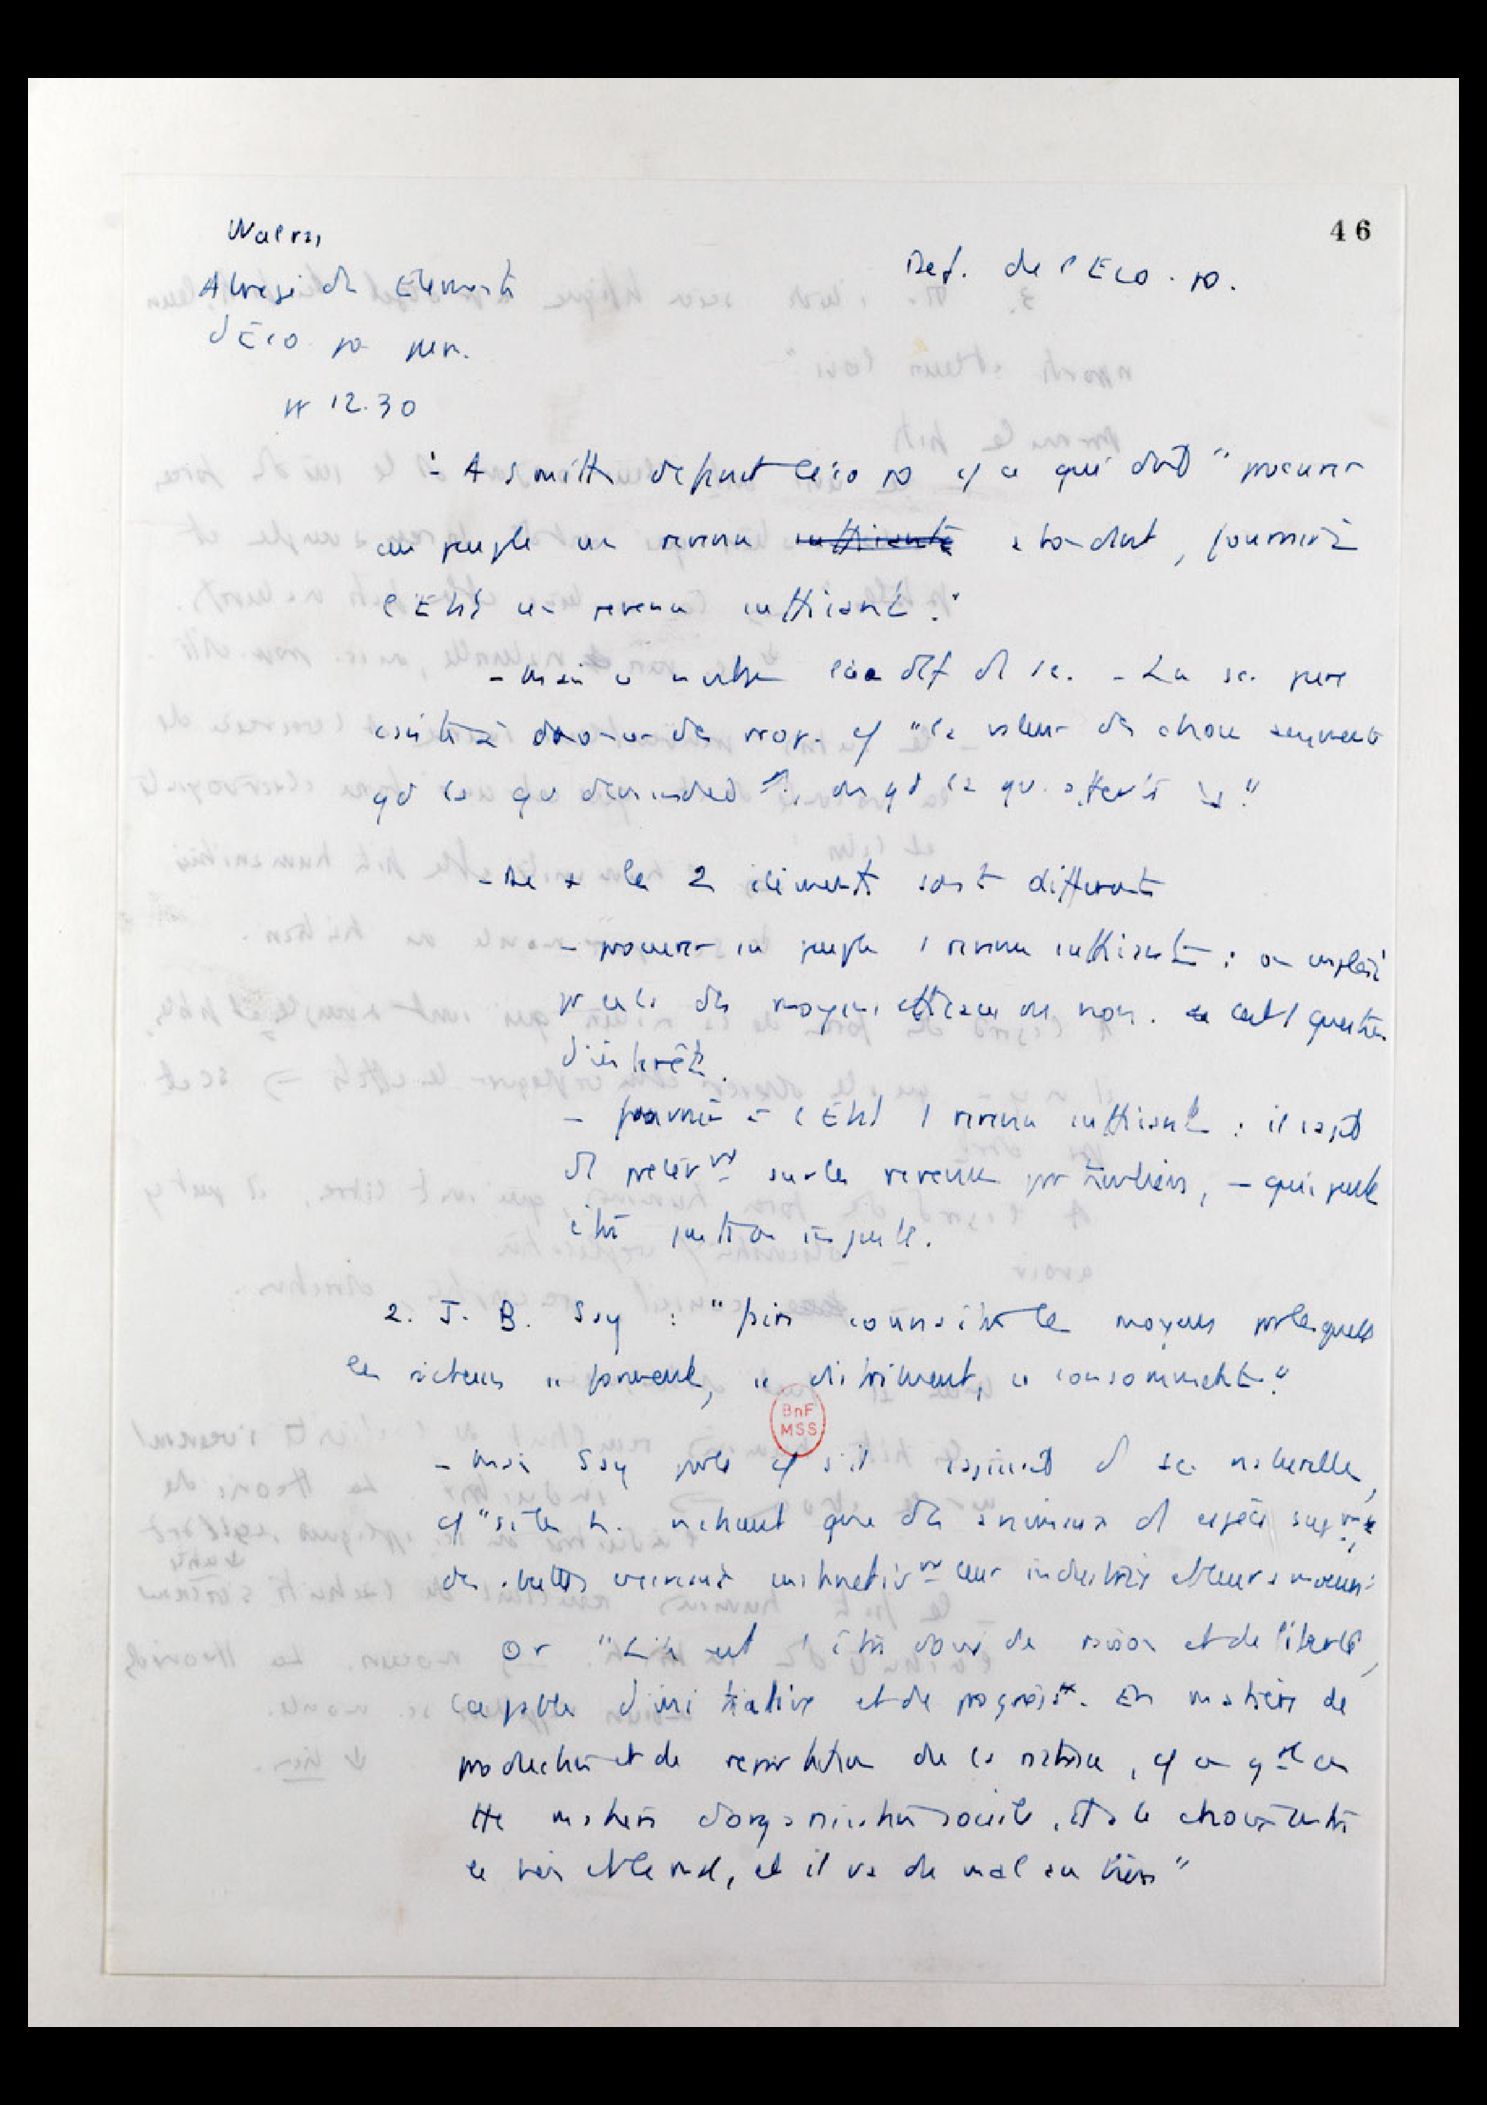 Walras
46
Abrégé des Eléments
Def. de l'Eco. po.
d'Eco po pure.
pp 12.30
1. A Smith definit l'eco po cô ce qui doit "procurer
au peuple un revenu suffisante abondant, fournir à
l'Etat un revenu suffisant."
- mais ce n'est pas def de sc. - La sc. pure
consiste à donner des prop. cô "la valeur des choses augmente
qd la qu demandée , ou qd la qu. offerte
- De + les 2 éléments sont différents
- procurer au peuple 1 revenu suffisant : on emploie
pr cela des moyens efficaces ou non. c'est 1 question
d'intérêt.
- fournir à l'Etat 1 revenu suffisant : il s'agit
de prélevmt sur les revenus particuliers, - qui peut
être juste ou injuste.
2. J. B. Say : "faire connaître les moyens par lesquels
les richesses se forment, se distribuent, se consomment."
BnF
MSS
- mais Say parle cô s'il s'agissait de sc. naturelle,
cô "si les h. n'étaient que des animaux d'espèce supre,
des abeilles exerçant instinctivmt leur industrie et leurs moeurs"
Or "L'h est 1 être doué de raison et de liberté,
capable d'initiative et de progrès. En matière de
production et de repartition de la richesse, cô en gal en
tte matière d'organisation sociale, il a le choix entre
le bien et le mal, et il va de mal au bien"